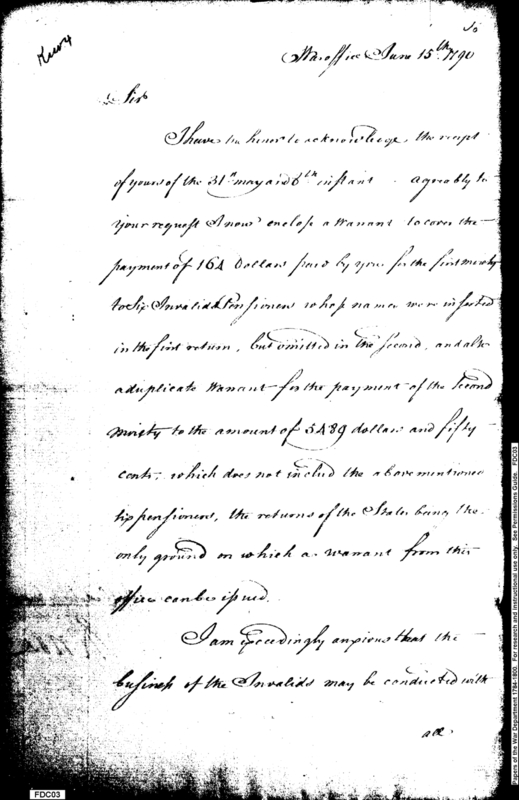 War office June 15th 1790
Sir
I have the honor to acknowledge the receipt
of yours of the 31st may and 6th instant agreeably to
your request I now enclose a Warrant to cover the
payment of 164 Dollars paid by you for the first moiety
to six Invalid Pensioners whose names were inserted
in the first return, but omitted in the second, and also
a duplicate Warrant for the payment of the second
moiety to the amount of 5489 dollars and fifty
cents, which does not includ the abovementioned
six pensioners, the returns of the States being the
only ground on which a warrant from this
office can be issued.
I am exceedingly anxious that the
business of the Invalids may be conducted with
all
FDC03
Papers of the War Department 1784-1800. For research and instructional use only. See Permissions Guide. FDC03